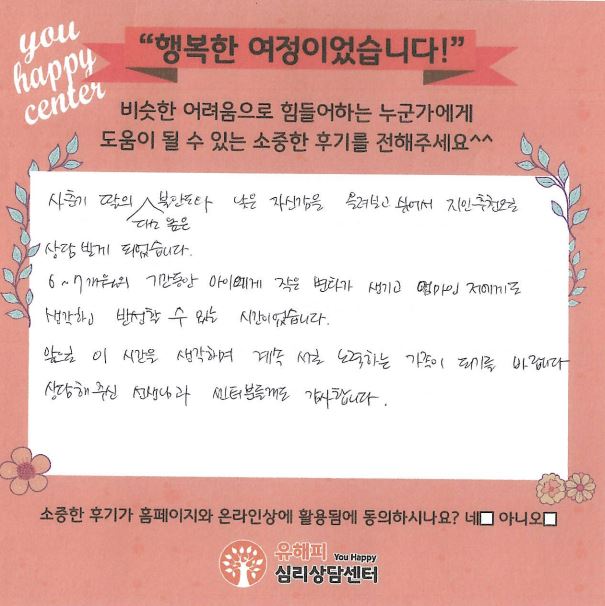 you
happy
center
“행복한 여정이었습니다!”
비슷한 어려움으로 힘들어하는 누군가에게
도움이 될 수 있는 소중한 후기를 전해주세요^^
사춘기 딸의 불안도와 낮은 자신감을 올려보고 싶어서 지인추천으로
높은
상담 받게 되었습니다.
6~7개월의 기간동안 아이에게 작은 변화가 생기고 엄마인 저에게도
생각하고 반성할 수 있는 시간이었습니다.
앞으로 이 시간을 생각하며 계속 서로 노력하는 가족이 되기를 바랍니다
상담해주신 선생님과 센터분들께도 감사합니다.
소중한 후기가 홈페이지와 온라인상에 활용됨에 동의하시나요? 네□ 아니오□
유해피 You Happy
심리상담센터